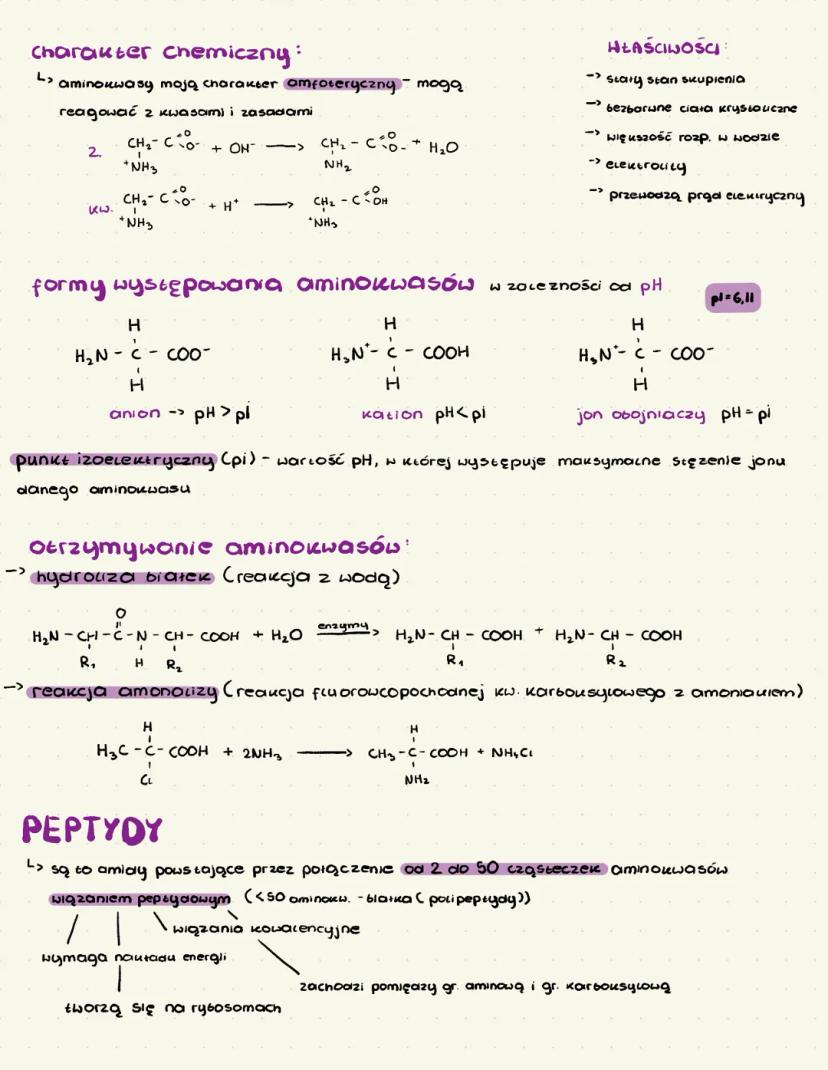 charakter chemiczny:
↳ aminokwasy mają charakter amfoteryczny - mogą
reagować z kwasami i zasadami
2. CH₂ - C =O O⁻ + OH⁻ → CH₂ - C =O O⁻ + H₂O
⁺NH₃ NH₂
kw. CH₂ - C =O O⁻ + H⁺ → CH₂ - C =O OH
⁺NH₃ ⁺NH₃
WŁAŚCIWOŚCI:
-> stały stan skupienia
-> bezbarwne ciała krystaliczne
-> większość rozp. w wodzie
-> elektrolity
-> przewodzą prąd elektryczny
formy występowania aminokwasów w zależności od pH
pI=6,11
H H H
H₂N - C - COO⁻ H₃N⁺- C - COOH H₃N⁺- C - COO⁻
H H H
anion -> pH > pI kation pH < pI jon obojniaczy pH = pI
punkt izoelektryczny (pi) - wartość pH, w której występuje maksymalne stężenie jonu
danego aminokwasu
otrzymywanie aminokwasów:
-> hydroliza białek (reakcja z wodą)
O
H₂N - CH - C - N - CH - COOH + H₂O enzymy → H₂N - CH - COOH + H₂N - CH - COOH
R₁ H R₂ R₁ R₂
-> reakcja amonolizy (reakcja fluorowcopochodnej kw. karboksylowego z amoniakiem)
H H
H₃C - C - COOH + 2NH₃ → CH₃ - C - COOH + NH₄Cl
Cl NH₂
PEPTYDY
↳ są to amidy powstające przez połączenie od 2 do 50 cząsteczek aminokwasów
wiązaniem peptydowym (<50 aminokw. - białka (polipeptydy))
wiązania kowalencyjne
wymaga nakładu energii
zachodzi pomiędzy gr. aminową i gr. karboksylową
tworzą się na rybosomach